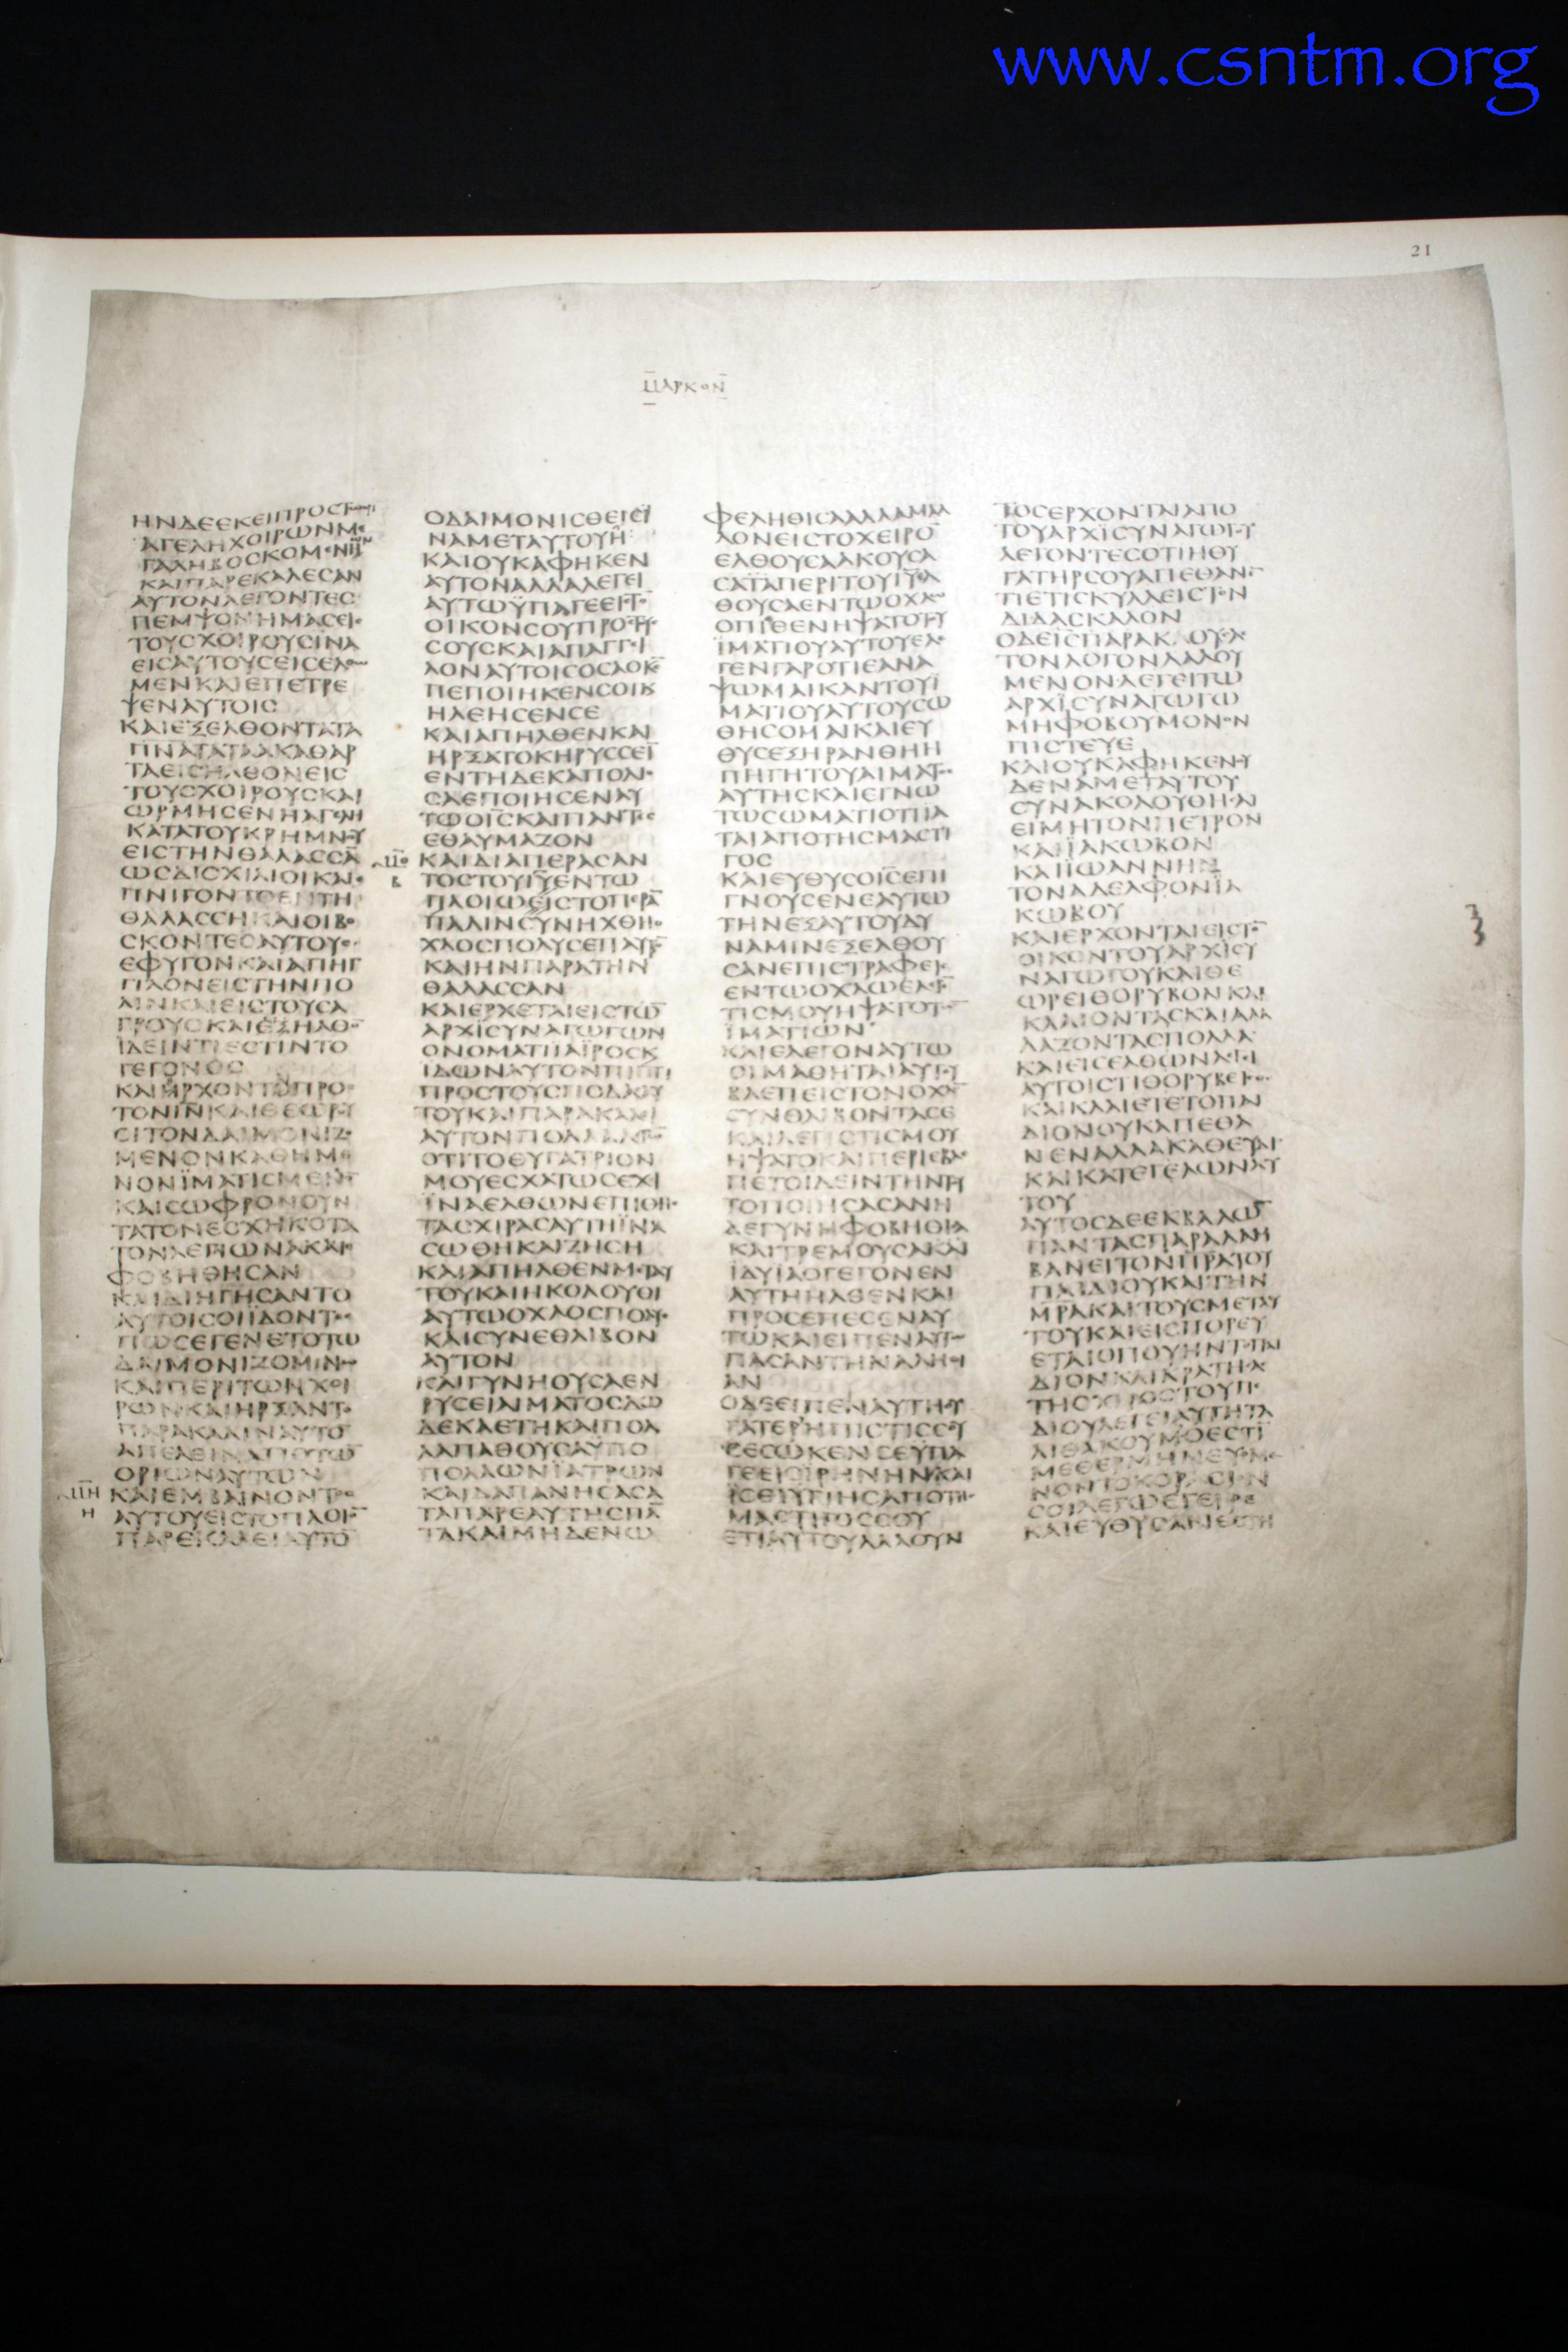 www.csntm.org
21
ΜΑΡΚΟΝ
ΗΝΔΕΕΚΕΙΠΡΟCΤ
ΑΓΕΛΗΧΟΙΡΩΝΜ
ΓΑΛΗΒΟCΚΟΜΕΝΗ
ΚΑΙΠΑΡΕΚΑΛΕCΑΝ
ΑΥΤΟΝΛΕΓΟΝΤΕC
ΠΕΜΨΟΝΗΜΑCΕΙC
ΤΟΥCΧΟΙΡΟΥCΙΝΑ
ΕΙCΑΥΤΟΥCΕΙCΕΛΘΩ
ΜΕΝΚΑΙΕΠΕΤΡΕ
ΨΕΝΑΥΤΟΙC
ΚΑΙΕΞΕΛΘΟΝΤΑΤΑ
ΠΝΑΤΑΤΑΑΚΑΘΑΡ
ΤΑΕΙCΗΛΘΟΝΕΙC
ΤΟΥCΧΟΙΡΟΥCΚΑΙ
ΩΡΜΗCΕΝΗΑΓΕΛΗ
ΚΑΤΑΤΟΥΚΡΗΜΝΟΥ
ΕΙCΤΗΝΘΑΛΑCCΑ̅
ΩCΔΙCΧΙΛΙΟΙΚΑΙΕ
ΠΝΙΓΟΝΤΟΕΝΤΗ
ΘΑΛΑCCΗΚΑΙΟΙΒΟ
CΚΟΝΤΕCΑΥΤΟΥC
ΕΦΥΓΟΝΚΑΙΑΠΗΓ
ΓΙΛΟΝΕΙCΤΗΝΠΟ
ΛΙΝΚΑΙΕΙCΤΟΥCΑ
ΓΡΟΥCΚΑΙΕΞΗΛΘΟ̅
ΙΔΕΙΝΤΙΕCΤΙΝΤΟ
ΓΕΓΟΝΟC
ΚΑΙΗΡΧΟΝΤΟΠΡΟC
ΤΟΝΙΝΚΑΙΘΕΩΡΟΥ
CΙΤΟΝΔΑΙΜΟΝΙΖΟ
ΜΕΝΟΝΚΑΘΗΜΕ
ΝΟΝΪΜΑΤΙCΜΕΝΟ̅
ΚΑΙCΩΦΡΟΝΟΥΝ
ΤΑΤΟΝΕCΧΗΚΟΤΑ
ΤΟΝΛΕΓΙΩΝΑΚΑΙΕ
ΦΟΒΗΘΗCΑΝ
ΚΑΙΔΙΗΓΗCΑΝΤΟ
ΑΥΤΟΙCΟΙΪΔΟΝΤΕC
ΠΩCΕΓΕΝΕΤΟΤΩ
ΔΑΙΜΟΝΙΖΟΜΕΝΩ
ΚΑΙΠΕΡΙΤΩΝΧΟΙ
ΡΩΝΚΑΙΗΡΞΑΝΤΟ
ΠΑΡΑΚΑΛΙΝΑΥΤΟ̅
ΑΠΕΛΘΙΝΑΠΟΤΩ̅
ΟΡΙΩΝΑΥΤΩΝ
ΜΗ
Η
ΚΑΙΕΜΒΑΙΝΟΝΤΟC
ΑΥΤΟΥΕΙCΤΟΠΛΟΙΟ̅
ΠΑΡΕΚΑΛΕΙΑΥΤΟ̅
ΟΔΑΙΜΟΝΙCΘΕΙCΪ
ΝΑΜΕΤΑΥΤΟΥΗ
ΚΑΙΟΥΚΑΦΗΚΕΝ
ΑΥΤΟΝΑΛΛΑΛΕΓΕΙ
ΑΥΤΩΫΠΑΓΕΕΙCΤΟ̅
ΟΙΚΟΝCΟΥΠΡΟCΤΟΥC
CΟΥCΚΑΙΑΠΑΓΓΙ
ΛΟΝΑΥΤΟΙCΟCΑΟΚC̅
ΠΕΠΟΙΗΚΕΝCΟΙΚ
ΗΛΕΗCΕΝCΕ
ΚΑΙΑΠΗΛΘΕΝΚΑΙ
ΗΡΞΑΤΟΚΗΡΥCCΕΙ̅
ΕΝΤΗΔΕΚΑΠΟΛΕΙ
ΟCΑΕΠΟΙΗCΕΝΑΥ
ΤΩΟΙCΚΑΙΠΑΝΤΕC
ΕΘΑΥΜΑΖΟΝ
ΜΘ
Β
ΚΑΙΔΙΑΠΕΡΑCΑΝ
ΤΟCΤΟΥΙΥ̅ΕΝΤΩ
ΠΛΟΙΩΕΙCΤΟΠΕΡΑ̅
ΠΑΛΙΝCΥΝΗΧΘΗΟ
ΧΛΟCΠΟΛΥCΕΠΑΥΤΟ̅
ΚΑΙΗΝΠΑΡΑΤΗΝ
ΘΑΛΑCCΑΝ
ΚΑΙΕΡΧΕΤΑΙΕΙCΤΩ̅
ΑΡΧΙCΥΝΑΓΩΓΩΝ
ΟΝΟΜΑΤΙΙΑΪΡΟCΚ
ΙΔΩΝΑΥΤΟΝΠΙΠΤΙ
ΠΡΟCΤΟΥCΠΟΔΑCΑΥ
ΤΟΥΚΑΙΠΑΡΑΚΑΛΕΙ
ΑΥΤΟΝΠΟΛΛΑΛΕΓΩ̅
ΟΤΙΤΟΘΥΓΑΤΡΙΟΝ
ΜΟΥΕCΧΑΤΩCΕΧΙ
ΪΝΑΕΛΘΩΝΕΠΙΘΗC
ΤΑCΧΙΡΑCΑΥΤΗΪΝΑ
CΩΘΗΚΑΙΖΗCΗ
ΚΑΙΑΠΗΛΘΕΝΜΕΤΑΥ
ΤΟΥΚΑΙΗΚΟΛΟΥΘΙ
ΑΥΤΩΟΧΛΟCΠΟΛΥC
ΚΑΙCΥΝΕΘΛΙΒΟΝ
ΑΥΤΟΝ
ΚΑΙΓΥΝΗΟΥCΑΕΝ
ΡΥCΕΙΑΙΜΑΤΟCΔΩ
ΔΕΚΑΕΤΗΚΑΙΠΟΛ
ΛΑΠΑΘΟΥCΑΫΠΟ
ΠΟΛΛΩΝΪΑΤΡΩΝ
ΚΑΙΔΑΠΑΝΗCΑCΑ
ΤΑΠΑΡΕΑΥΤΗCΠΑ̅
ΤΑΚΑΙΜΗΔΕΝΩ
ΦΕΛΗΘΙCΑΑΛΛΑΜΑΛ
ΛΟΝΕΙCΤΟΧΕΙΡΟ̅
ΕΛΘΟΥCΑΑΚΟΥCΑ
CΑΤΑΠΕΡΙΤΟΥΙΥ̅ΕΛ
ΘΟΥCΑΕΝΤΩΟΧΛΩ
ΟΠΙCΘΕΝΗΨΑΤΟΤΟΥ
ΪΜΑΤΙΟΥΑΥΤΟΥΕΛΕ
ΓΕΝΓΑΡΟΤΙΕΑΝΑ
ΨΩΜΑΙΚΑΝΤΟΥΪ
ΜΑΤΙΟΥΑΥΤΟΥCΩ
ΘΗCΟΜΑΙΚΑΙΕΥ
ΘΥCΕΞΗΡΑΝΘΗΗ
ΠΗΓΗΤΟΥΑΙΜΑΤΟC
ΑΥΤΗCΚΑΙΕΓΝΩ
ΤΩCΩΜΑΤΙΟΤΙΙΑ
ΤΑΙΑΠΟΤΗCΜΑCΤΙ
ΓΟC
ΚΑΙΕΥΘΥCΟΙC̅ΕΠΙ
ΓΝΟΥCΕΝΕΑΥΤΩ
ΤΗΝΕΞΑΥΤΟΥΔΥ
ΝΑΜΙΝΕΞΕΛΘΟΥ
CΑΝΕΠΙCΤΡΑΦΕΙC
ΕΝΤΩΟΧΛΩΕΛΕΓΕ̅
ΤΙCΜΟΥΗΨΑΤΟΤΩ̅
ΪΜΑΤΙΩΝ
ΚΑΙΕΛΕΓΟΝΑΥΤΩ
ΟΙΜΑΘΗΤΑΙΑΥΤΟΥ
ΒΛΕΠΕΙCΤΟΝΟΧΛΟ̅
CΥΝΘΛΙΒΟΝΤΑCΕ
ΚΑΙΛΕΓΙCΤΙCΜΟΥ
ΗΨΑΤΟΚΑΙΠΕΡΙΕΒΛΕ
ΠΕΤΟΙΔΕΙΝΤΗΝΤΟΥ
ΤΟΠΟΙΗCΑCΑΝΗ
ΔΕΓΥΝΗΦΟΒΗΘΙCΑ
ΚΑΙΤΡΕΜΟΥCΑΚΑΙ
ΙΔΥΙΑΟΓΕΓΟΝΕΝ
ΑΥΤΗΗΛΘΕΝΚΑΙ
ΠΡΟCΕΠΕCΕΝΑΥ
ΤΩΚΑΙΕΙΠΕΝΑΥΤΩ
ΠΑCΑΝΤΗΝΑΛΗΘΙ
ΑΝ
ΟΔΕΕΙΠΕΝΑΥΤΗΘΥ
ΓΑΤΕΡΗΠΙCΤΙCCΟΥ
CΕCΩΚΕΝCΕΫΠΑ
ΓΕΕΙCΙΡΗΝΗΝΚΑΙ
ΙCΘΙΫΓΙΗCΑΠΟΤΗC
ΜΑCΤΙΓΟCCΟΥ
ΕΤΙΑΥΤΟΥΛΑΛΟΥΝ
ΤΟCΕΡΧΟΝΤΑΙΑΠΟ
ΤΟΥΑΡΧΙCΥΝΑΓΩΓΟΥ
ΛΕΓΟΝΤΕCΟΤΙΗΘΥ
ΓΑΤΗΡCΟΥΑΠΕΘΑΝΕ̅
ΤΙΕΤΙCΚΥΛΛΕΙCΤΟΝ
ΔΙΔΑCΚΑΛΟΝ
ΟΔΕΙC̅ΠΑΡΑΚΟΥCΑC
ΤΟΝΛΟΓΟΝΛΑΛΟΥ
ΜΕΝΟΝΛΕΓΕΙΤΩ
ΑΡΧΙCΥΝΑΓΩΓΩ
ΜΗΦΟΒΟΥΜΟΝΟΝ
ΠΙCΤΕΥΕ
ΚΑΙΟΥΚΑΦΗΚΕΝΟΥ
ΔΕΝΑΜΕΤΑΥΤΟΥ
CΥΝΑΚΟΛΟΥΘΗCΑΙ
ΕΙΜΗΤΟΝΠΕΤΡΟΝ
ΚΑΙΪΑΚΩΒΟΝ
ΚΑΙΪΩΑΝΝΗΝ
ΤΟΝΑΔΕΛΦΟΝΪΑ
ΚΩΒΟΥ
ΚΑΙΕΡΧΟΝΤΑΙΕΙCΤΟ̅
ΟΙΚΟΝΤΟΥΑΡΧΙCΥ
ΝΑΓΩΓΟΥΚΑΙΘΕ
ΩΡΕΙΘΟΡΥΒΟΝΚΑΙ
ΚΛΑΙΟΝΤΑCΚΑΙΑΛΑ
ΛΑΖΟΝΤΑCΠΟΛΛΑ
ΚΑΙΕΙCΕΛΘΩΝΛΕΓΕΙ
ΑΥΤΟΙCΤΙΘΟΡΥΒΕΙCΘΕ
ΚΑΙΚΛΑΙΕΤΕΤΟΠΑΙ
ΔΙΟΝΟΥΚΑΠΕΘΑ
ΝΕΝΑΛΛΑΚΑΘΕΥΔΕΙ
ΚΑΙΚΑΤΕΓΕΛΩΝΑΥ
ΤΟΥ
ΑΥΤΟCΔΕΕΚΒΑΛΩ̅
ΠΑΝΤΑCΠΑΡΑΛΑΜ
ΒΑΝΕΙΤΟΝΠΡΑΤΟΥ
ΠΑΙΔΙΟΥΚΑΙΤΗΝ
ΜΡΑΚΑΙΤΟΥCΜΕΤΑΥ
ΤΟΥΚΑΙΕΙCΠΟΡΕΥ
ΕΤΑΙΟΠΟΥΗΝΤΟΠΑΙ
ΔΙΟΝΚΑΙΚΡΑΤΗCΑC
ΤΗCΧΙΡΟCΤΟΥΠΑΙ
ΔΙΟΥΛΕΓΕΙΑΥΤΗΤΑ
ΛΙΘΑΚΟΥΜΟΕCΤΙ̅
ΜΕΘΕΡΜΗΝΕΥΟΜΕ
ΝΟΝΤΟΚΟΡΑCΙΟΝ
CΟΙΛΕΓΩΕΓΕΙΡΕ
ΚΑΙΕΥΘΥCΑΝΕCΤΗ